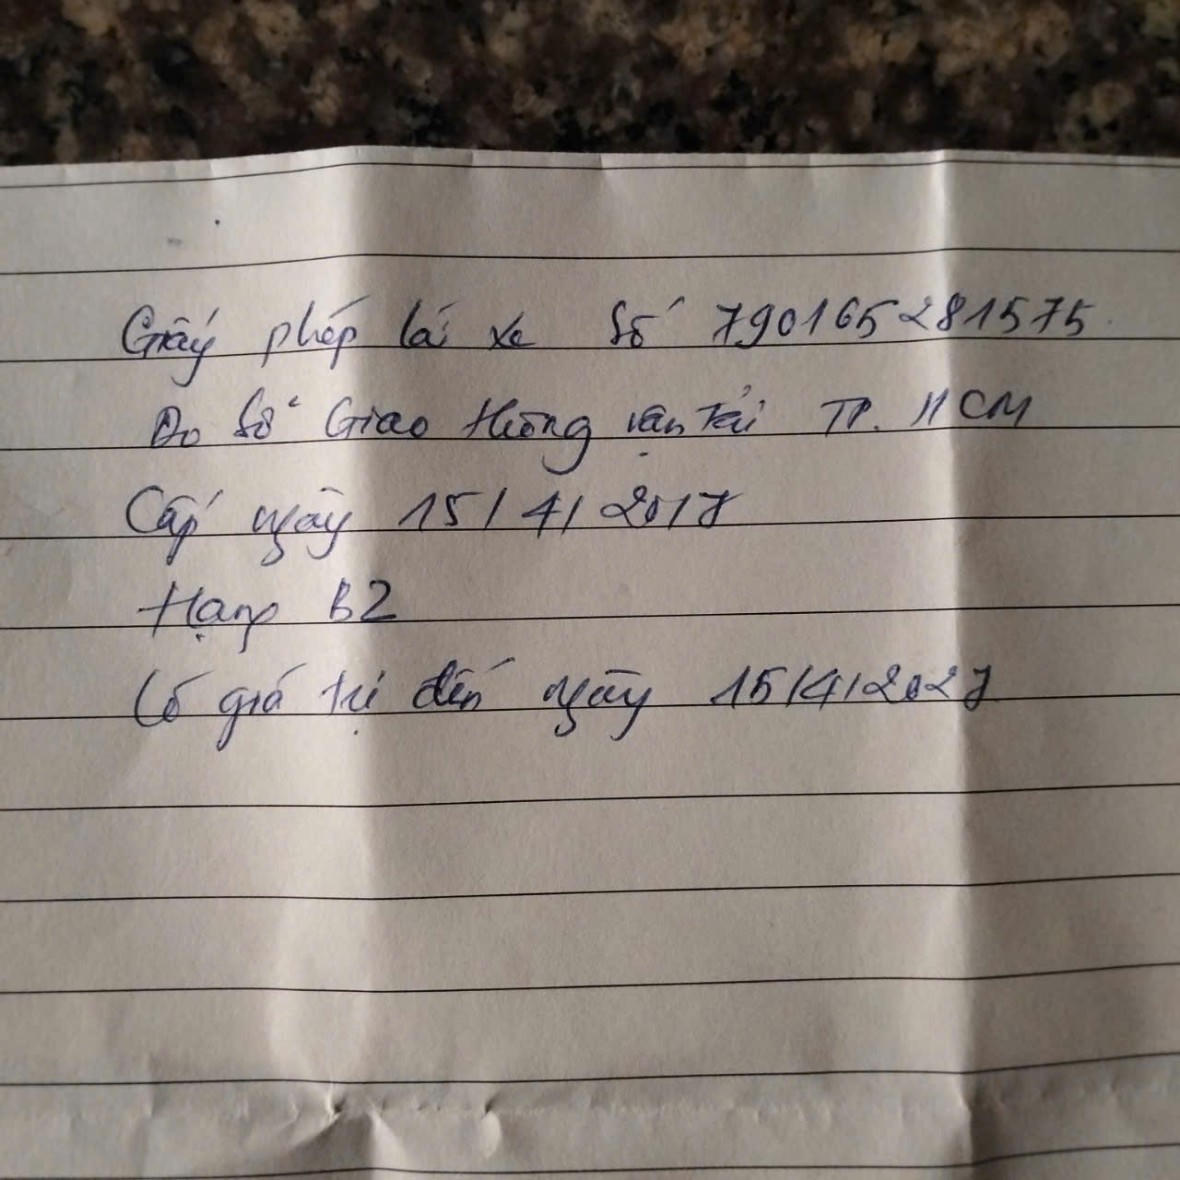 Giấy phép lái xe Số 790165281575
Do Sở Giao thông vận Tải TP. HCM
Cấp ngày 15/4/2017
Hạng B2
Có giá trị đến ngày 15/4/2027